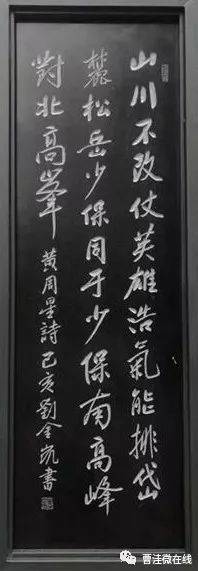 山川不改仗英雄浩氣能排岱
麓松岳少保同于少保南高峰
對北高峯 黄周星詩己亥劉金凯書
曹洼微在线